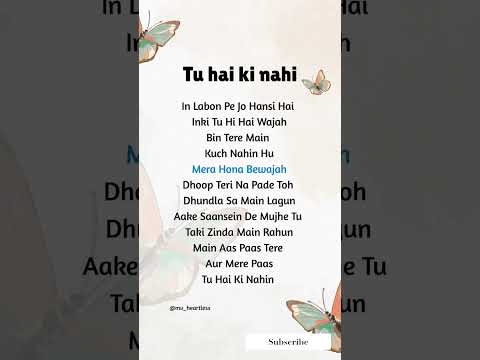 In Labon Pe Jo Hansi Hai
Tu hai ki nahi
In Labon Pe Jo Hansi Hai
Inki Tu Hi Hai Wajah
Bin Tere Main
Kuch Nahin Hu
Mera Hona Bewajah
Dhoop Teri Na Pade Toh
Dhundla Sa Main Lagun
Aake Saansein De Mujhe Tu
Taki Zinda Main Rahun
Main Aas Paas Tere
Aur Mere Paas
Tu Hai Ki Nahin
@mu_heartless
Subscribe